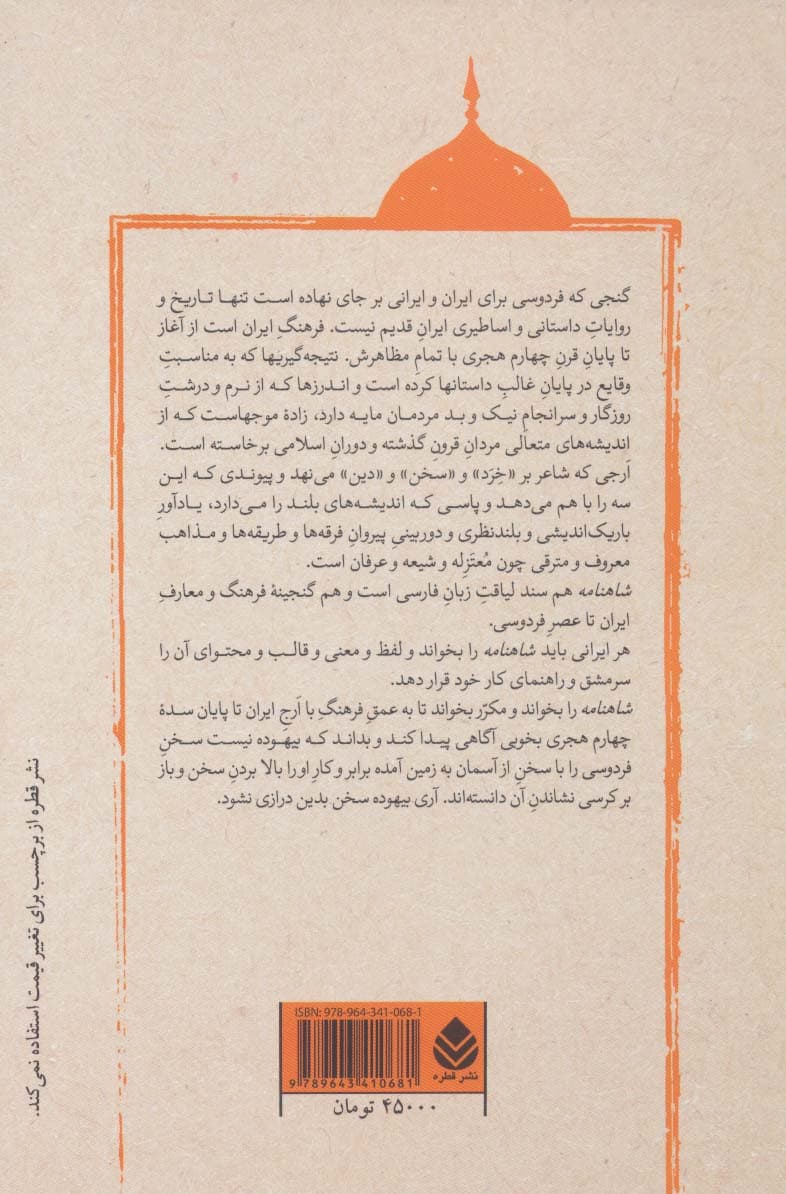 گنجی که فردوسی برای ایران و ایرانی بر جای نهاده است تنها تاریخ و
روایاتِ داستانی و اساطیری ایرانِ قدیم نیست. فرهنگِ ایران است از آغاز
تا پایانِ قرنِ چهارم هجری با تمامِ مظاهرش. نتیجه‌گیریها که به مناسبتِ
وقایع در پایانِ غالبِ داستانها کرده است و اندرزها که از نرم و درشتِ
روزگار و سرانجامِ نیک و بد مردمان مایه دارد، زادهٔ موجهاست که از
اندیشه‌های متعالی مردانِ قرونِ گذشته و دورانِ اسلامی برخاسته است.
اَرجی که شاعر بر «خِرَد» و «سخن» و «دین» می‌نهد و پیوندی که این
سه را با هم می‌دهد و پاسی که اندیشه‌های بلند را می‌دارد، یادآورِ
باریک‌اندیشی و بلندنظری و دوربینیِ پیروانِ فرقه‌ها و طریقه‌ها و مذاهب
معروف و مترقی چون مُعتَزِله و شیعه و عرفان است.
شاهنامه هم سند لیاقتِ زبانِ فارسی است و هم گنجینهٔ فرهنگ و معارفِ
ایران تا عصرِ فردوسی.
هر ایرانی باید شاهنامه را بخواند و لفظ و معنی و قالب و محتوای آن را
سرمشق و راهنمای کار خود قرار دهد.
شاهنامه را بخواند و مکرّر بخواند تا به عمقِ فرهنگِ با اَرجِ ایران تا پایان سدهٔ
چهارم هجری بخوبی آگاهی پیدا کند و بداند که بیهوده نیست سخنِ
فردوسی را با سخنِ از آسمان به زمین آمده برابر و کارِ او را بالا بردنِ سخن و باز
بر کرسی نشاندنِ آن دانسته‌اند. آری بیهوده سخن بدین درازی نشود.
نشر قطره از برچسب برای تغییر قیمت استفاده نمی‌کند.
ISBN: 978-964-341-068-1
9 789643 410681
نشر قطره
۴۵۰۰۰ تومان